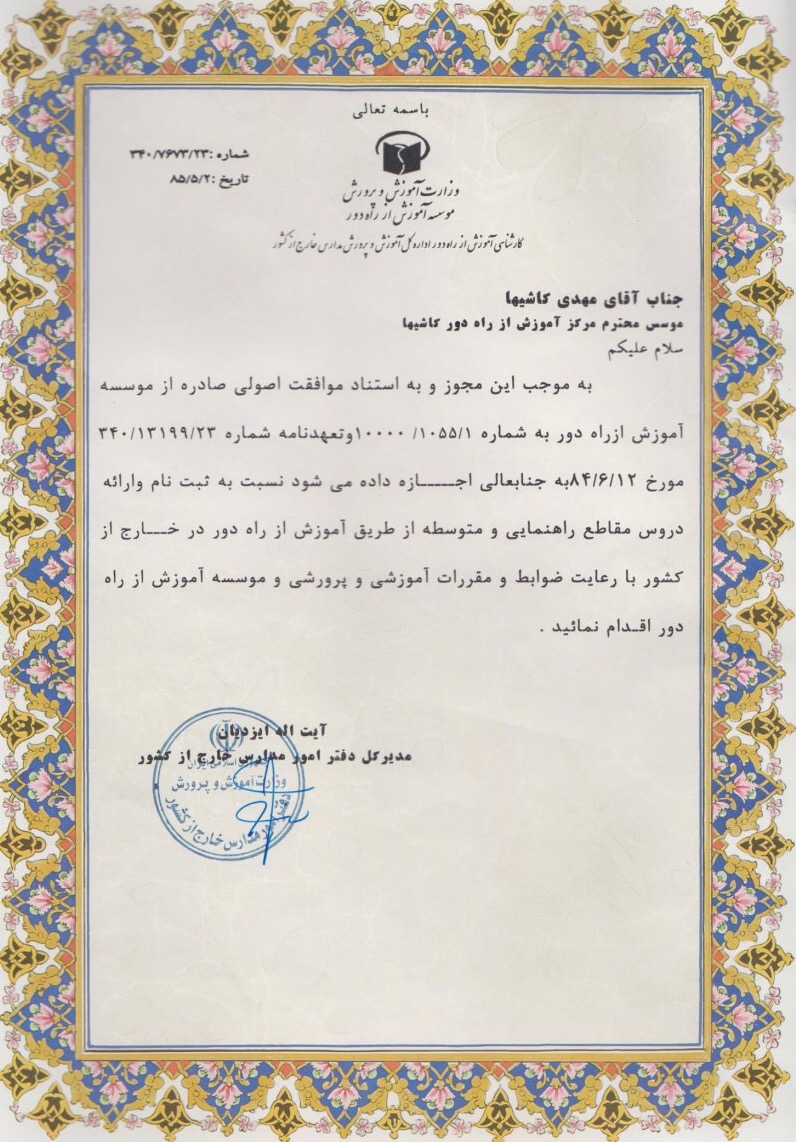 باسمه تعالی
شماره :۳۴۰/۷۶۷۳/۲۳
تاریخ :۸۵/۵/۲
وزارت آموزش و پرورش
موسسه آموزش از راه دور
کارشناسی آموزش از راه دور اداره کل آموزش و پرورش مدارس خارج از کشور
جناب آقای مهدی کاشیها
موسس محترم مرکز آموزش از راه دور کاشیها
سلام علیکم
به موجب این مجوز و به استناد موافقت اصولی صادره از موسسه
آموزش ازراه دور به شماره ۱۰۵۵/۱/ ۱۰۰۰۰وتعهدنامه شماره ۳۴۰/۱۳۱۹۹/۲۳
مورخ ۸۴/۶/۱۲به جنابعالی اجـــــازه داده می شود نسبت به ثبت نام وارائه
دروس مقاطع راهنمایی و متوسطه از طریق آموزش از راه دور در خـــارج از
کشور با رعایت ضوابط و مقررات آموزشی و پرورشی و موسسه آموزش از راه
دور اقـدام نمائید .
آیت اله ایزدیان
مدیرکل دفتر امور مدارس خارج از کشور
جمهوری اسلامی ایران
وزارت آموزش و پرورش
مدارس خارج از کشور